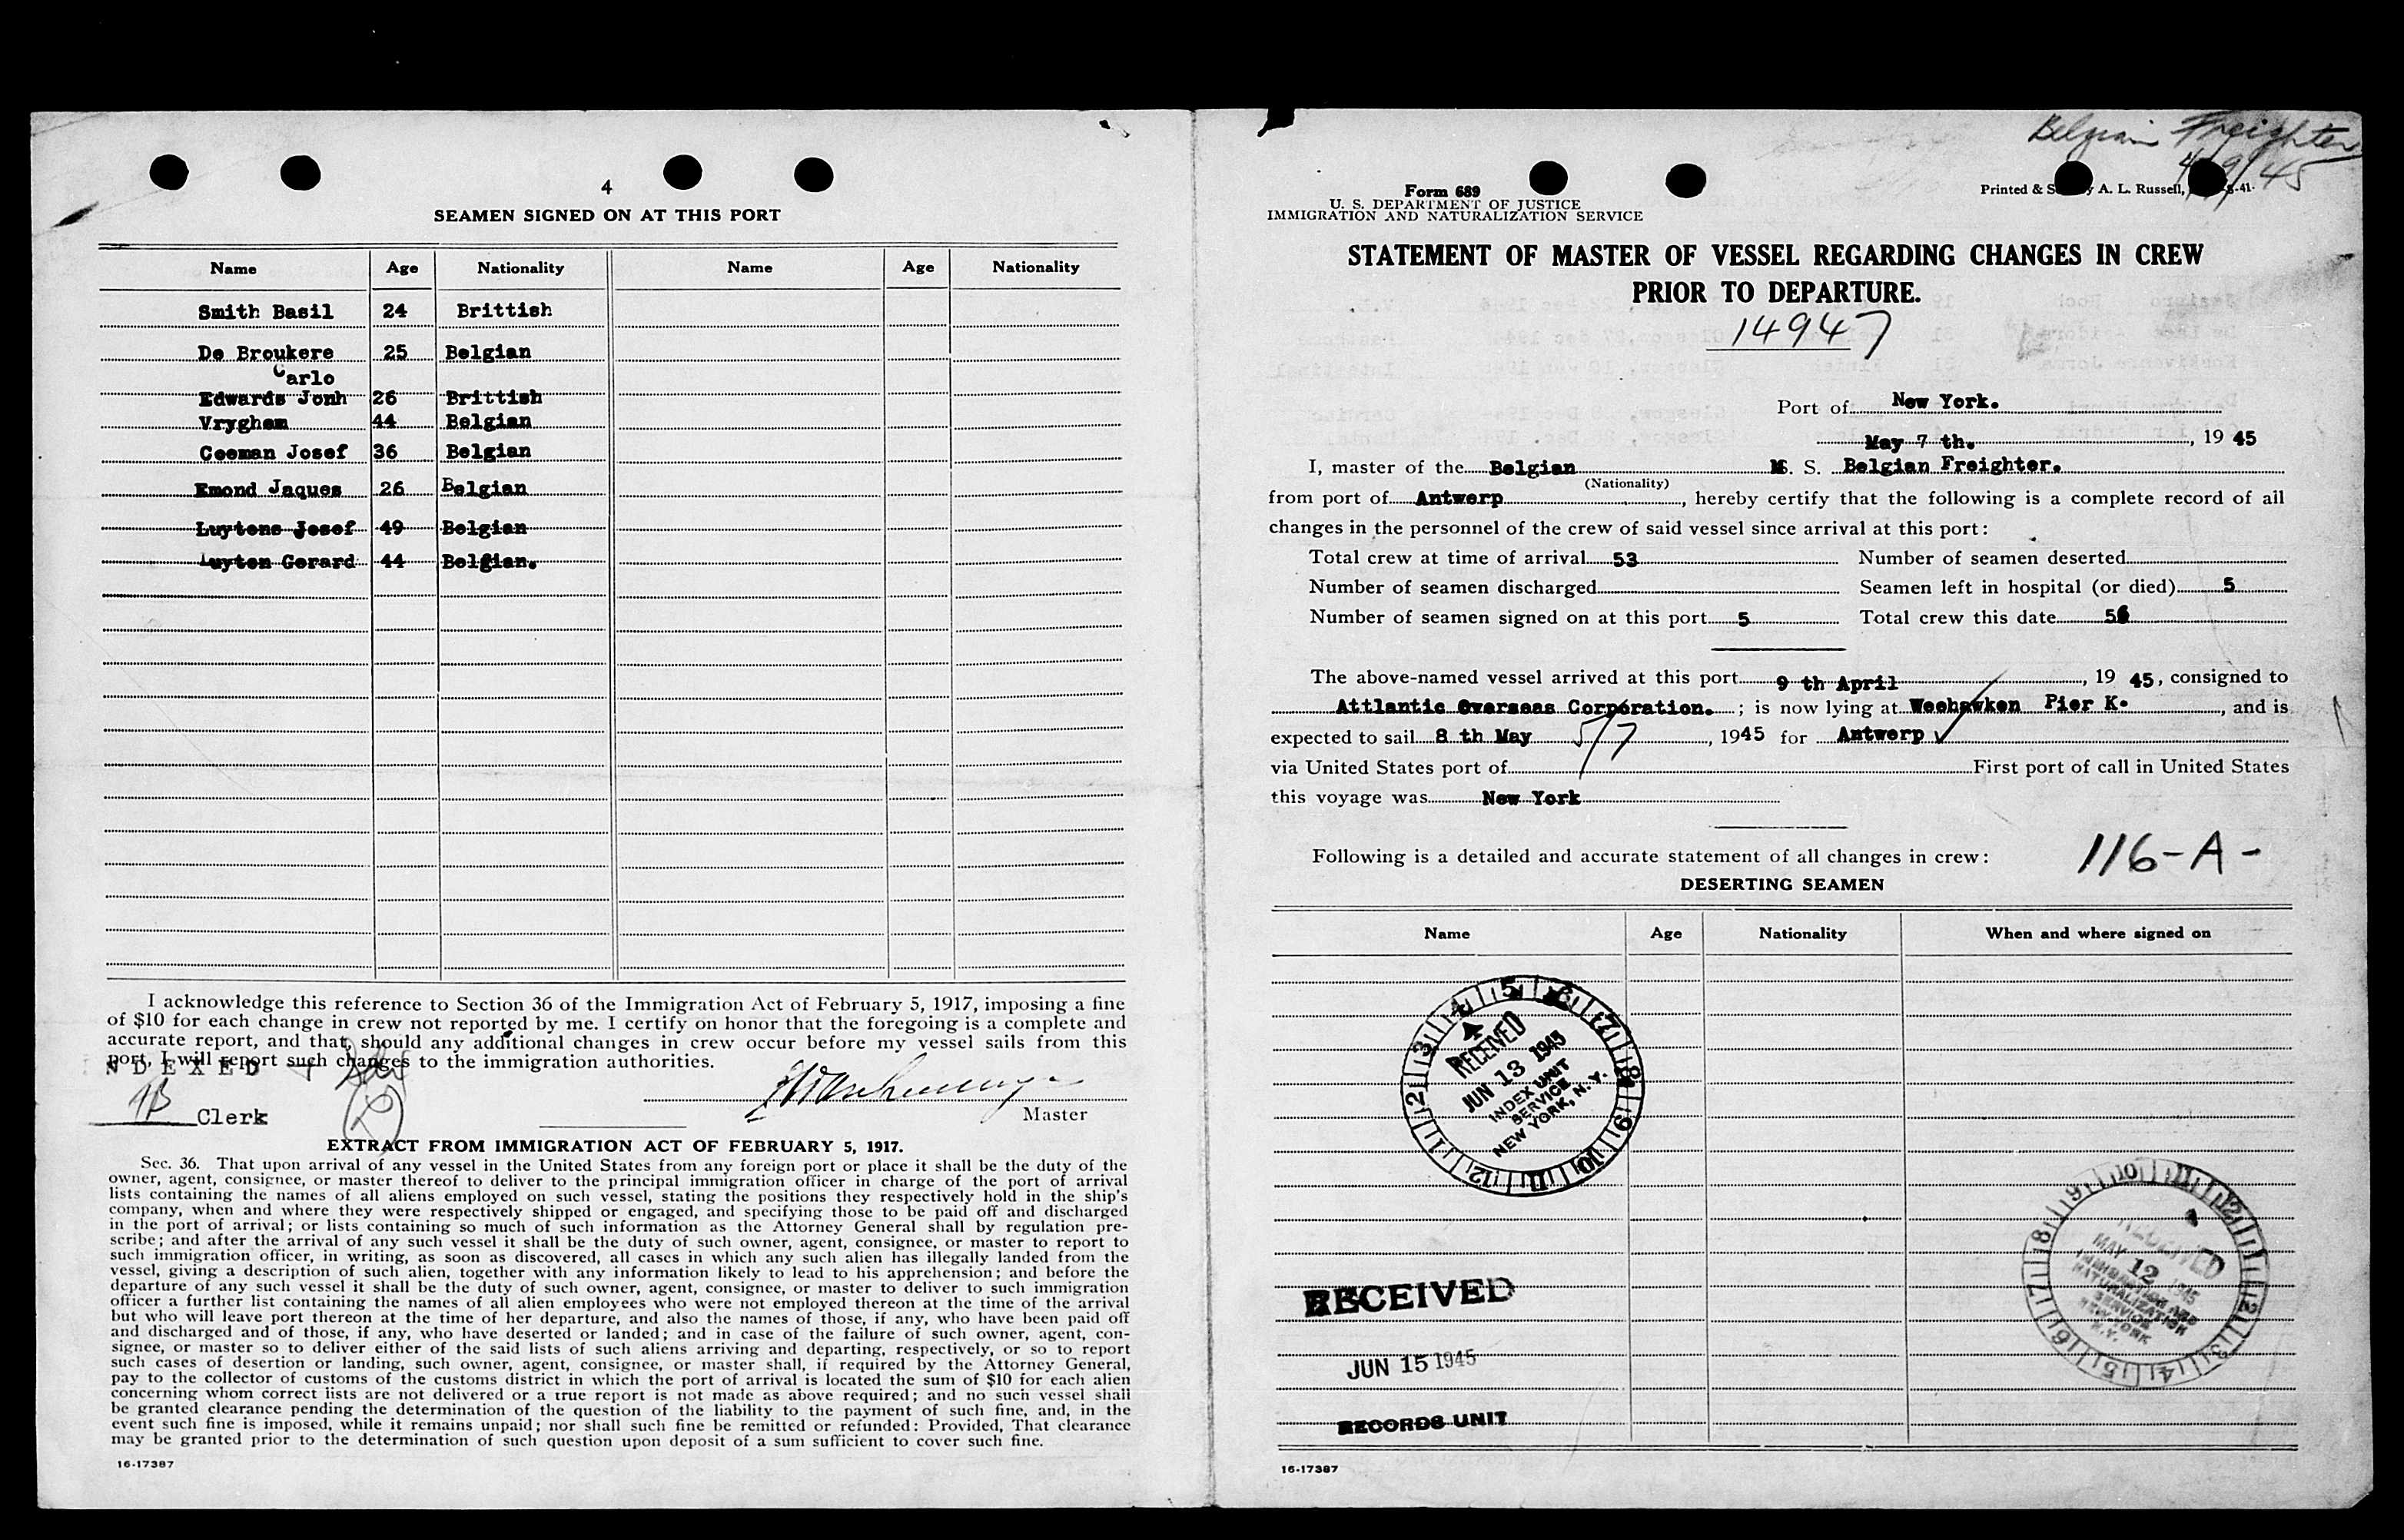 4
SEAMEN SIGNED ON AT THIS PORT
Name Age Nationality Name Age Nationality
Smith Basil 24 Brittish
De Broukere 25 Belgian
Carlo
Edwards Jonh 26 Brittish
Vryghem 44 Belgian
Ceeman Josef 36 Belgian
Emond Jaques 26 Belgian
Luytens Josef 49 Belgian
Luyten Gerard 44 Belgian.
I acknowledge this reference to Section 36 of the Immigration Act of February 5, 1917, imposing a fine
of $10 for each change in crew not reported by me. I certify on honor that the foregoing is a complete and
accurate report, and that, should any additional changes in crew occur before my vessel sails from this
port, I will report such changes to the immigration authorities.
NDEXED
Clerk
Master
EXTRACT FROM IMMIGRATION ACT OF FEBRUARY 5, 1917.
Sec. 36. That upon arrival of any vessel in the United States from any foreign port or place it shall be the duty of the
owner, agent, consignee, or master thereof to deliver to the principal immigration officer in charge of the port of arrival
lists containing the names of all aliens employed on such vessel, stating the positions they respectively hold in the ship's
company, when and where they were respectively shipped or engaged, and specifying those to be paid off and discharged
in the port of arrival; or lists containing so much of such information as the Attorney General shall by regulation pre-
scribe; and after the arrival of any such vessel it shall be the duty of such owner, agent, consignee, or master to report to
such immigration officer, in writing, as soon as discovered, all cases in which any such alien has illegally landed from the
vessel, giving a description of such alien, together with any information likely to lead to his apprehension; and before the
departure of any such vessel it shall be the duty of such owner, agent, consignee, or master to deliver to such immigration
officer a further list containing the names of all alien employees who were not employed thereon at the time of the arrival
but who will leave port thereon at the time of her departure, and also the names of those, if any, who have been paid off
and discharged and of those, if any, who have deserted or landed; and in case of the failure of such owner, agent, con-
signee, or master so to deliver either of the said lists of such aliens arriving and departing, respectively, or so to report
such cases of desertion or landing, such owner, agent, consignee, or master shall, if required by the Attorney General,
pay to the collector of customs of the customs district in which the port of arrival is located the sum of $10 for each alien
concerning whom correct lists are not delivered or a true report is not made as above required; and no such vessel shall
be granted clearance pending the determination of the question of the liability to the payment of such fine, and, in the
event such fine is imposed, while it remains unpaid; nor shall such fine be remitted or refunded: Provided, That clearance
may be granted prior to the determination of such question upon deposit of a sum sufficient to cover such fine.
16-17387
Belgian Freighter
4/9/45
Form 689
Printed & S y A. L. Russell, -41.
U. S. DEPARTMENT OF JUSTICE
IMMIGRATION AND NATURALIZATION SERVICE
STATEMENT OF MASTER OF VESSEL REGARDING CHANGES IN CREW
PRIOR TO DEPARTURE.
14947
Port of New York.
May 7 th., 19 45
I, master of the Belgian M. S. Belgian Freighter.
(Nationality)
from port of Antwerp, hereby certify that the following is a complete record of all
changes in the personnel of the crew of said vessel since arrival at this port:
Total crew at time of arrival 53 Number of seamen deserted
Number of seamen discharged Seamen left in hospital (or died) 5
Number of seamen signed on at this port 5 Total crew this date
The above-named vessel arrived at this port 9 th April, 19 45, consigned to
Attlantic Overseas Corporation. ; is now lying at Weehawken Pier K., and is
expected to sail 8 th May 5/7, 1945 for Antwerp ✓
via United States port of First port of call in United States
this voyage was New York
116-A-
Following is a detailed and accurate statement of all changes in crew:
DESERTING SEAMEN
Name Age Nationality When and where signed on
RECEIVED
JUN 13 1945
INDEX UNIT
SERVICE
NEW YORK, N. Y.
1 2 3 4 5 6 7 8 9 10 11 12
RECEIVED
MAY 12 1945
IMMIGRATION AND
NATURALIZATION
SERVICE
NEW YORK
N.Y.
RECEIVED
JUN 15 1945
RECORDS UNIT
16-17387